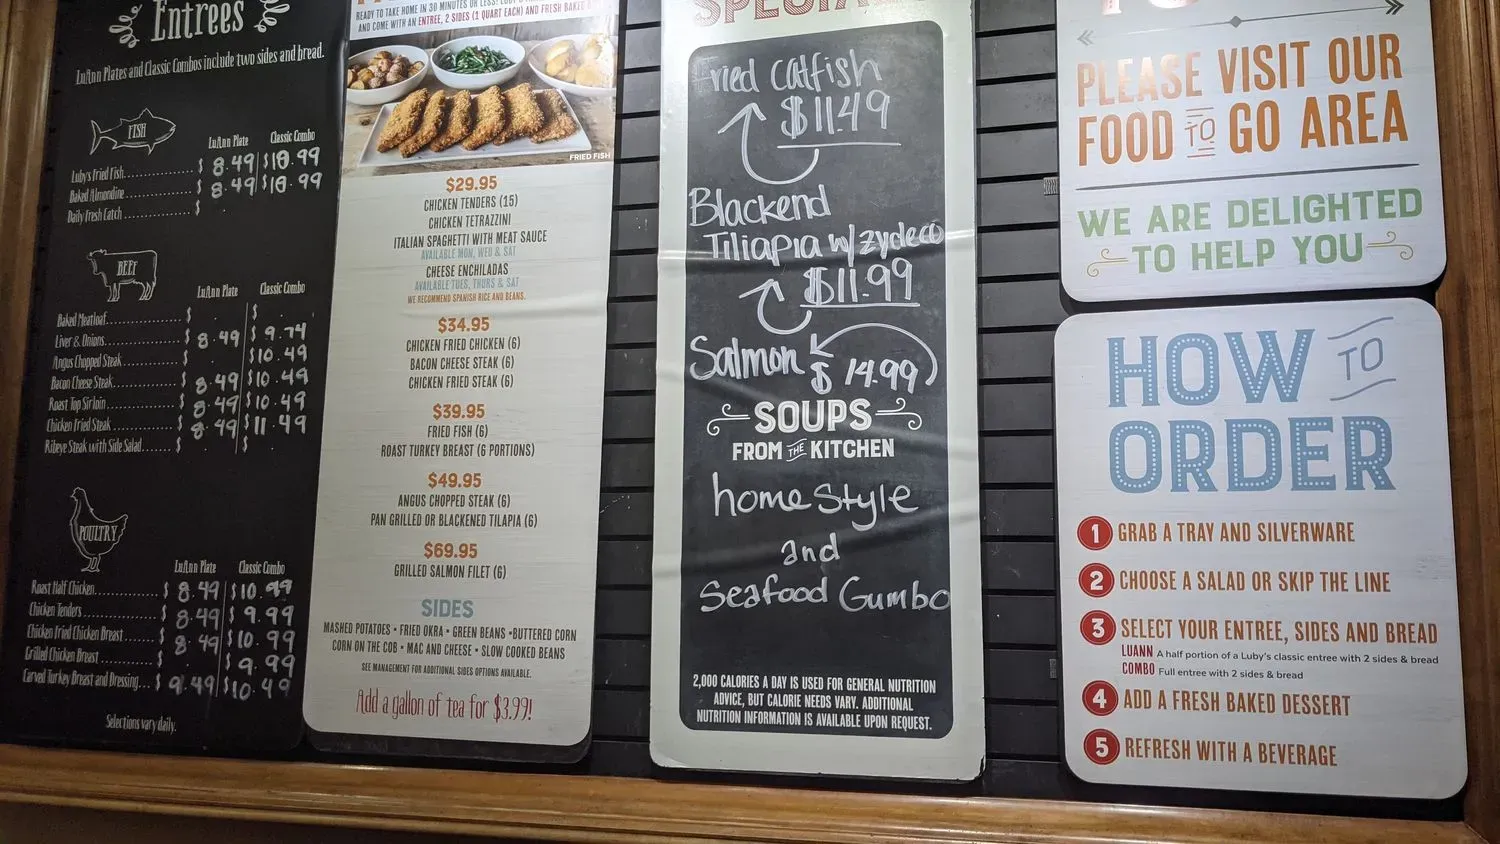 Entrees
LuAnn Plates and Classic Combos include two sides and bread.
FISH
LuAnn Plate Classic Combo
Luby's Fried Fish $ 8.49 $10.99
Baked Almondine $ 8.49 $10.99
Daily Fresh Catch $
BEEF
LuAnn Plate Classic Combo
Baked Meatloaf $ $
Liver & Onions $ 8.49 $ 9.74
Angus Chopped Steak $ $10.49
Bacon Cheese Steak $ 8.49 $10.49
Roast Top Sirloin $ 8.49 $10.49
Chicken Fried Steak $ 8.49 $11.49
Ribeye Steak with Side Salad $ $
POULTRY
LuAnn Plate Classic Combo
Roast Half Chicken $ 8.49 $10.99
Chicken Tenders $ 8.49 $ 9.99
Chicken Fried Chicken Breast $ 8.49 $10.99
Grilled Chicken Breast $ $ 9.99
Carved Turkey Breast and Dressing $ 9.49 $10.49
Selections vary daily.
READY TO TAKE HOME IN 30 MINUTES OR LESS!
AND COME WITH AN ENTREE, 2 SIDES (1 QUART EACH) AND FRESH BAKED
FRIED FISH
$29.95
CHICKEN TENDERS (15)
CHICKEN TETRAZZINI
ITALIAN SPAGHETTI WITH MEAT SAUCE
AVAILABLE MON, WED & SAT
CHEESE ENCHILADAS
AVAILABLE TUES, THURS & SAT
WE RECOMMEND SPANISH RICE AND BEANS.
$34.95
CHICKEN FRIED CHICKEN (6)
BACON CHEESE STEAK (6)
CHICKEN FRIED STEAK (6)
$39.95
FRIED FISH (6)
ROAST TURKEY BREAST (6 PORTIONS)
$49.95
ANGUS CHOPPED STEAK (6)
PAN GRILLED OR BLACKENED TILAPIA (6)
$69.95
GRILLED SALMON FILET (6)
SIDES
MASHED POTATOES • FRIED OKRA • GREEN BEANS • BUTTERED CORN
CORN ON THE COB • MAC AND CHEESE • SLOW COOKED BEANS
SEE MANAGEMENT FOR ADDITIONAL SIDES OPTIONS AVAILABLE.
Add a gallon of tea for $3.99!
Fried Catfish
$11.49
Blackend
Tiliapia w/ zydeco
$11.99
Salmon
$ 14.99
SOUPS
FROM THE KITCHEN
homestyle
and
Seafood Gumbo
2,000 CALORIES A DAY IS USED FOR GENERAL NUTRITION
ADVICE, BUT CALORIE NEEDS VARY. ADDITIONAL
NUTRITION INFORMATION IS AVAILABLE UPON REQUEST.
PLEASE VISIT OUR
FOOD TO GO AREA
WE ARE DELIGHTED
TO HELP YOU
HOW TO
ORDER
1 GRAB A TRAY AND SILVERWARE
2 CHOOSE A SALAD OR SKIP THE LINE
3 SELECT YOUR ENTREE, SIDES AND BREAD
LUANN A half portion of a Luby's classic entree with 2 sides & bread
COMBO Full entree with 2 sides & bread
4 ADD A FRESH BAKED DESSERT
5 REFRESH WITH A BEVERAGE